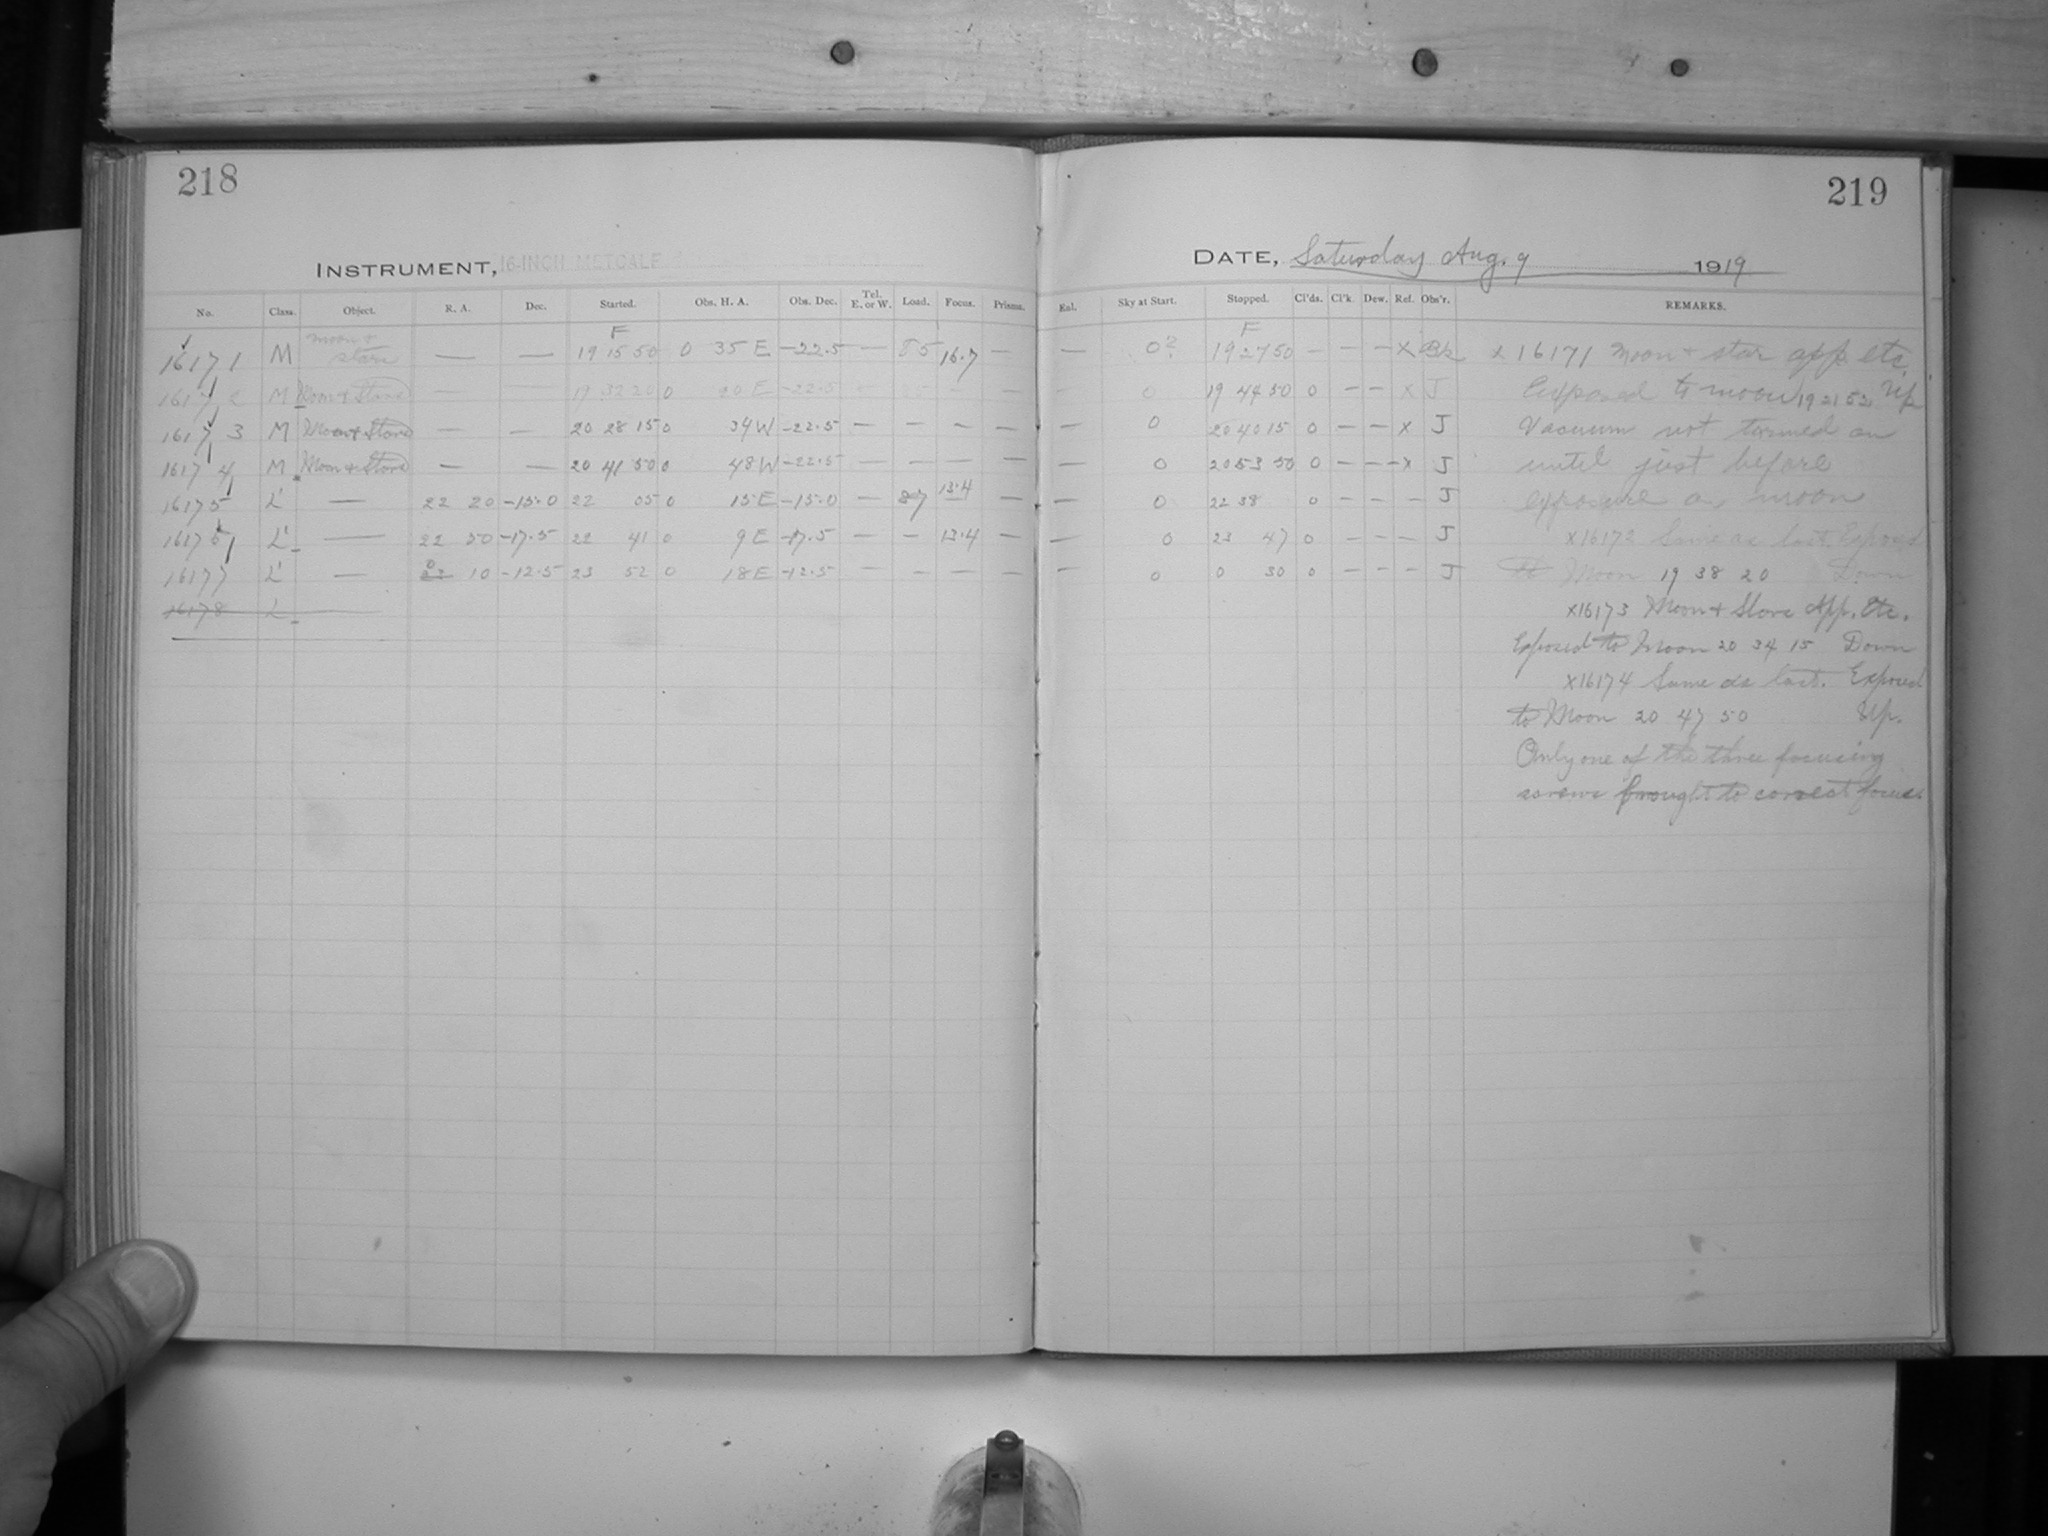 218
INSTRUMENT, 16-INCH METCALF
No. Class. Object. R. A. Dec. Started. Obs. H. A. Obs. Dec. Tel. E. or W. Load. Focus. Prisms.
F
16171 M moon + stars — — 19 15 50 0 35 E -22.5 — 85 16.7 —
16172 M Moon & Stars — — 19 32 20 0 20 E -22.5 — —
16173 M Moon & Stars — — 20 28 15 0 34 W -22.5 — — — —
16174 M Moon & Stars — — 20 41 50 0 48 W -22.5 — — — —
16175 L' — 22 20 -15.0 22 05 0 15 E -15.0 — 87 13.4 —
16176 L' — 22 50 -17.5 22 41 0 9 E -17.5 — — 13.4 —
16177 L' — 0 10 -12.5 23 52 0 18 E -12.5 — — — —
16178 L
219
DATE, Saturday Aug. 9 1919
Enl. Sky at Start. Stopped. Cl'ds. Cl'k. Dew. Ref. Obs'r. REMARKS.
F
— 0? 19 27 50 — — — X Bk x 16171 Moon + star app. etc.
— 0 19 44 50 0 — — X J Exposed to moon 19 21 52 Up
— 0 20 40 15 0 — — X J Vacuum not turned on
— 0 20 53 50 0 — — - X J until just before
— 0 22 38 0 — — — J exposure on moon
— 0 23 47 0 — — — J x16172 Same as last. Exposed
— 0 0 30 0 — — — J to Moon 19 38 20 Down
x16173 Moon + Stars App. Etc.
Exposed to Moon 20 34 15 Down
x16174 Same as last. Exposed
to Moon 20 47 50 Up.
Only one of the three focusing
screws brought to correct focus